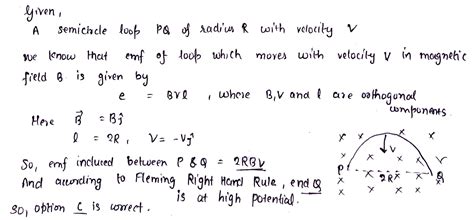 Given,
A semicircle loop PQ of radius R with velocity V
we know that emf of loop which moves with velocity V in magnetic
field B is given by
e = Bvl , where B, V and l are orthogonal
components.
Here B⃗ = Bĵ
l = 2R , V = -Vĵ
So, emf induced between P & Q = 2RBV
And according to Fleming Right Hand Rule, end Q
is at high potential.
So, option C is correct.
x x x x
x x
V
P Q
2R
x x x